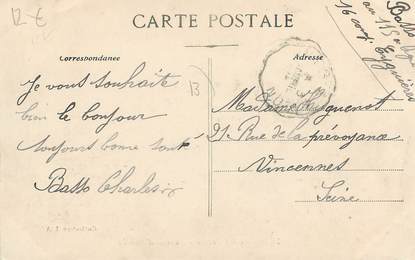 12 €
CARTE POSTALE
Correspondance
Adresse
Je vous souhaite
bien le bonjour
toujours bonne santé
Basso Charles
13
Madame Huguenot
21 Rue de la prévoyance
Vincennes
Seine
Basso
au 115
16